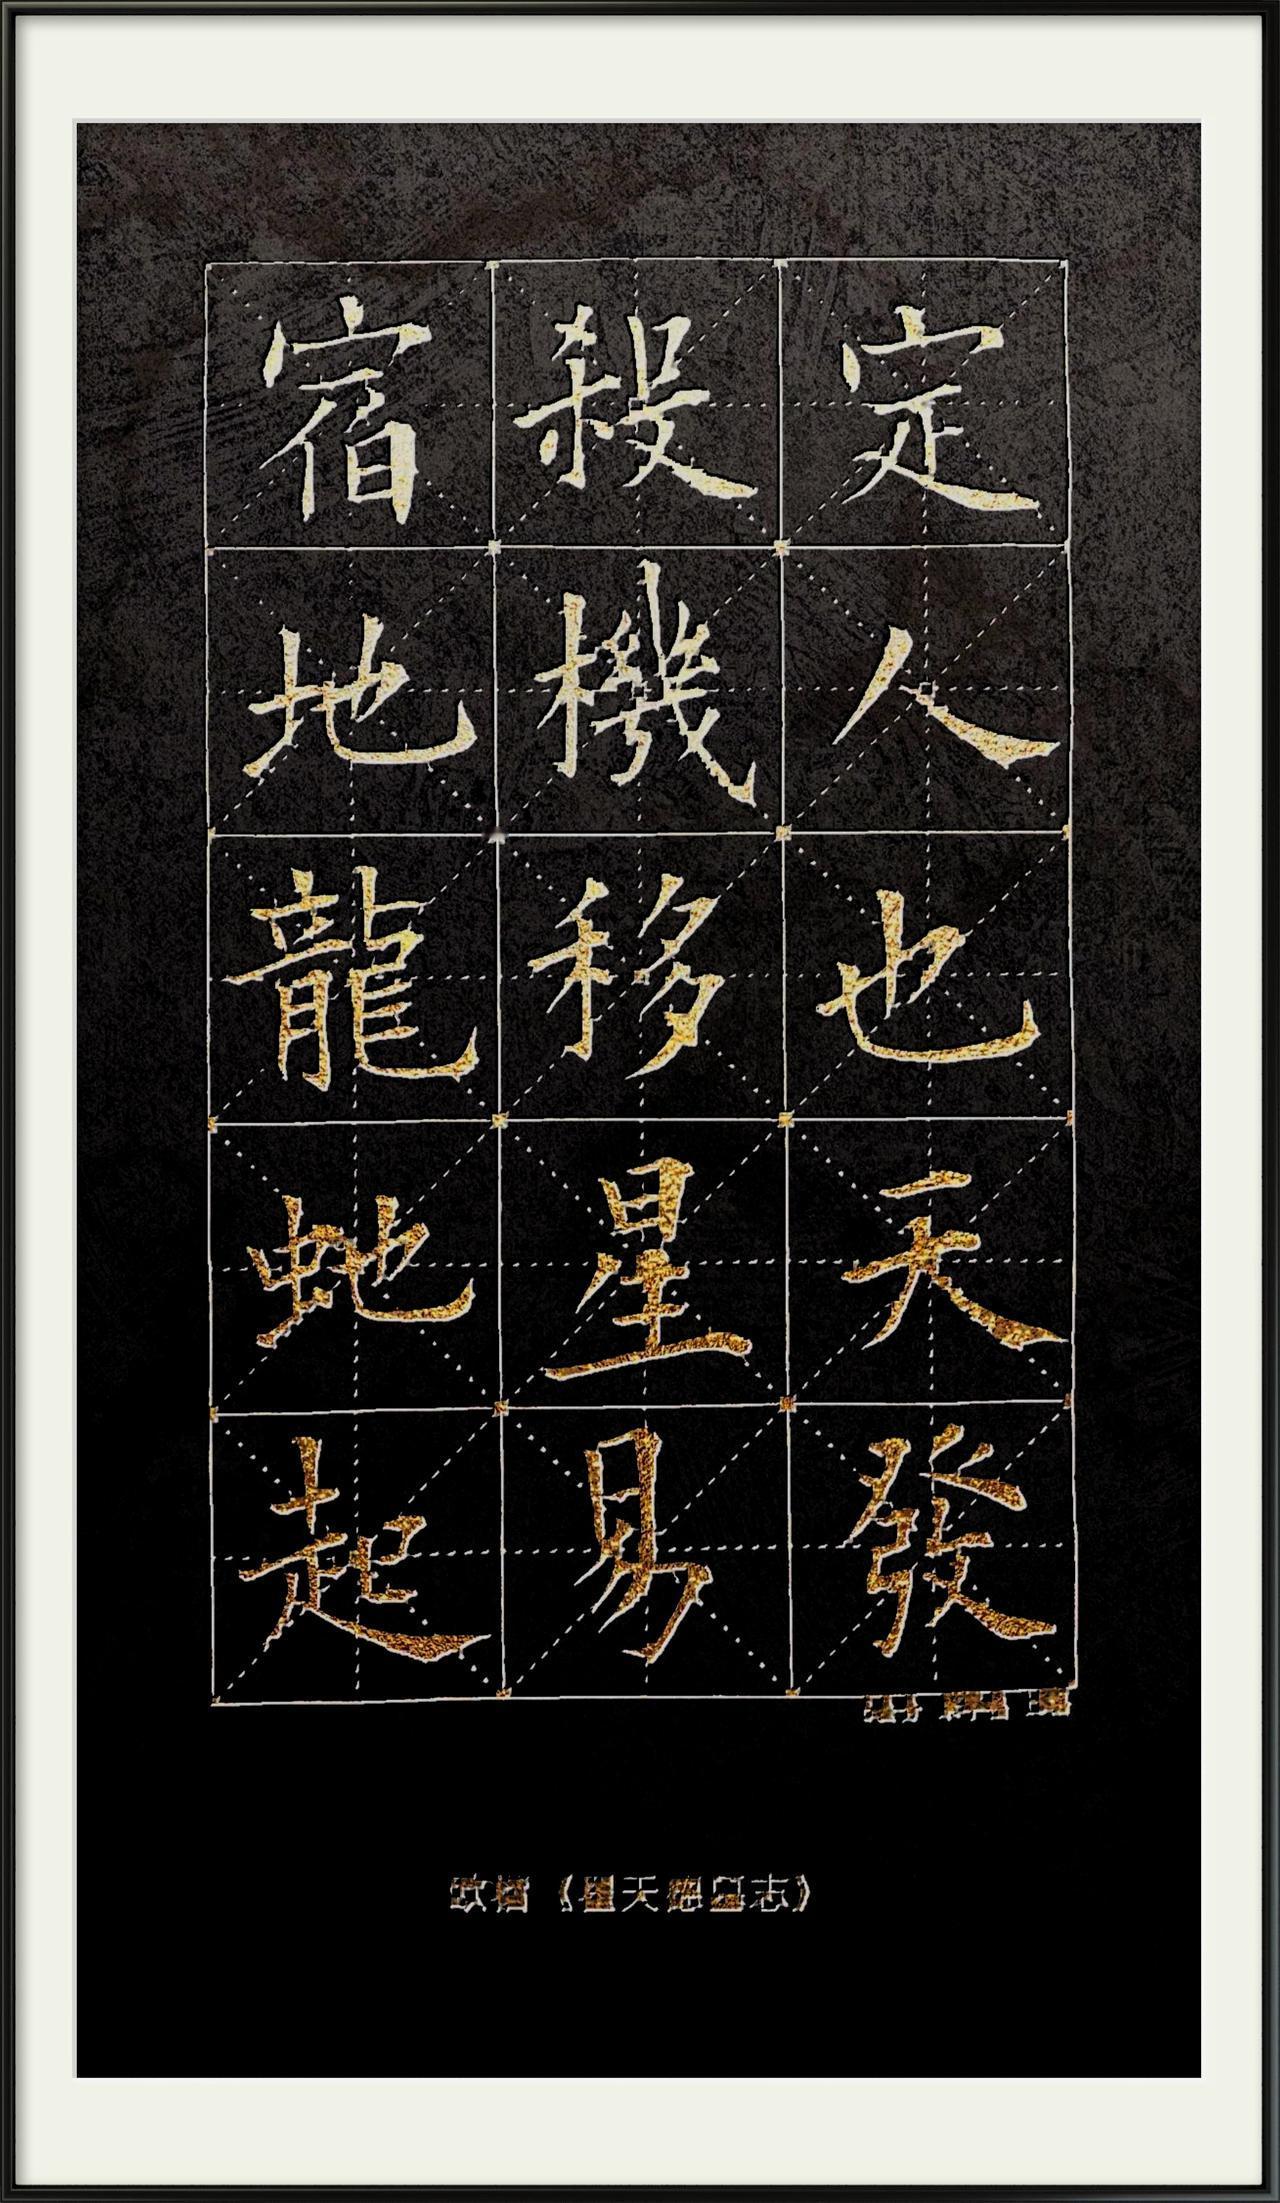 定人也天發
殺機移星易
宿地龍虵起
欧楷《星天禪墓志》